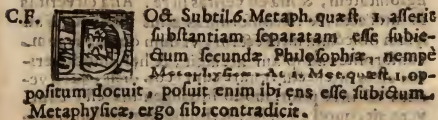 C.F. DOct. Subtil. 6. Metaph. quæst. 1, asserit
substantiam separatam esse subie-
ctum secundæ Philosophiæ, nempè
Metaphysicæ. At 1. Met. quæst. 1. op-
positum docuit, posuit enim ibi ens esse subiectum
Metaphysicæ, ergo sibi contradicit.